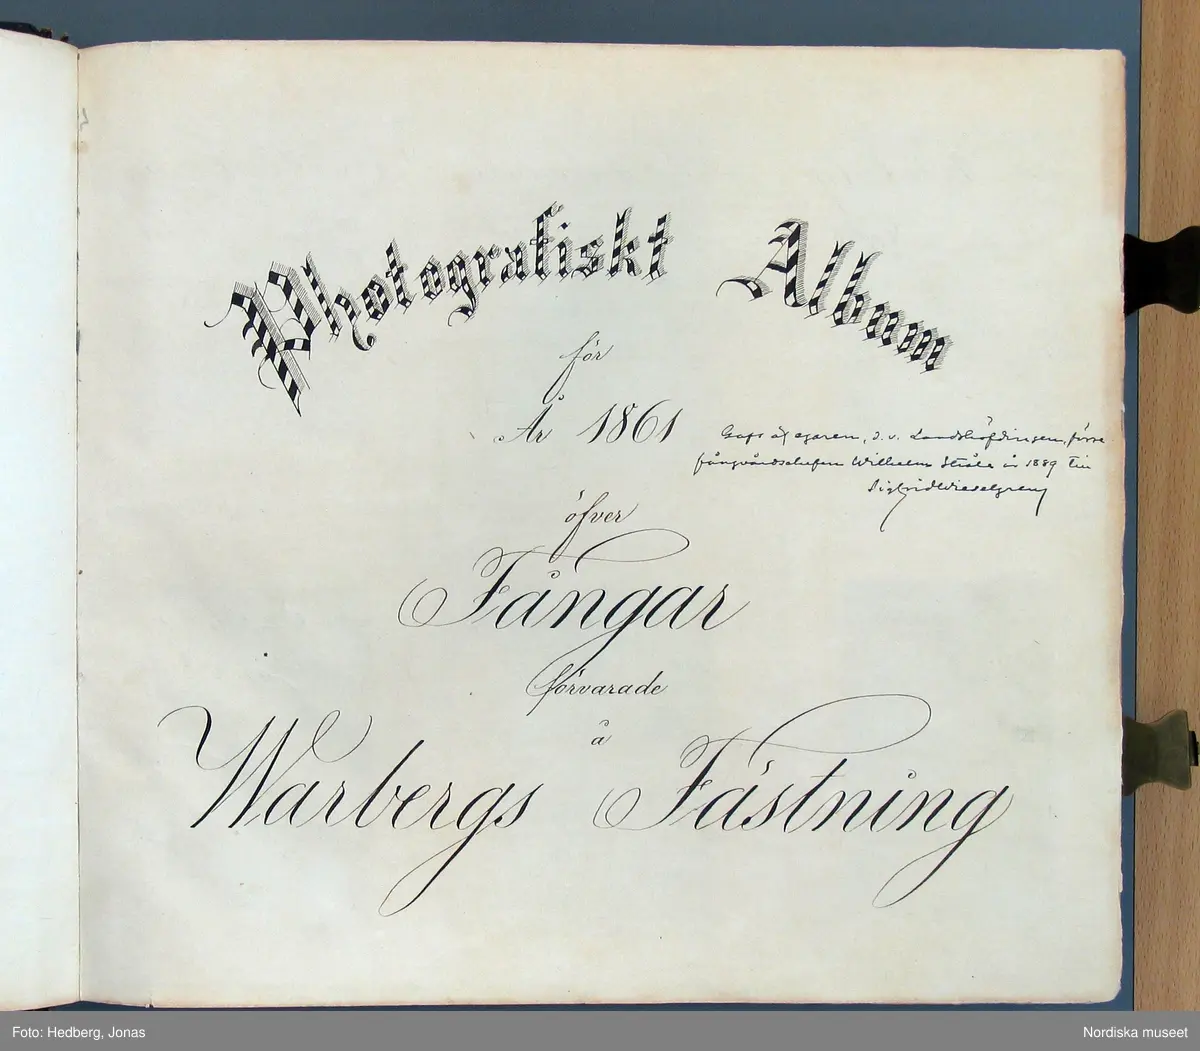 Photografiskt Album
för
År 1861
Gafs af egaren, d. v. Landshöfdingen, förre
fångvårdschefen Wilhelm Stråle år 1889 till
Sigfrid Wieselgren
öfver
Fångar
förvarade
å
Warbergs Fästning
Foto: Hedberg, Jonas
Nordiska museet